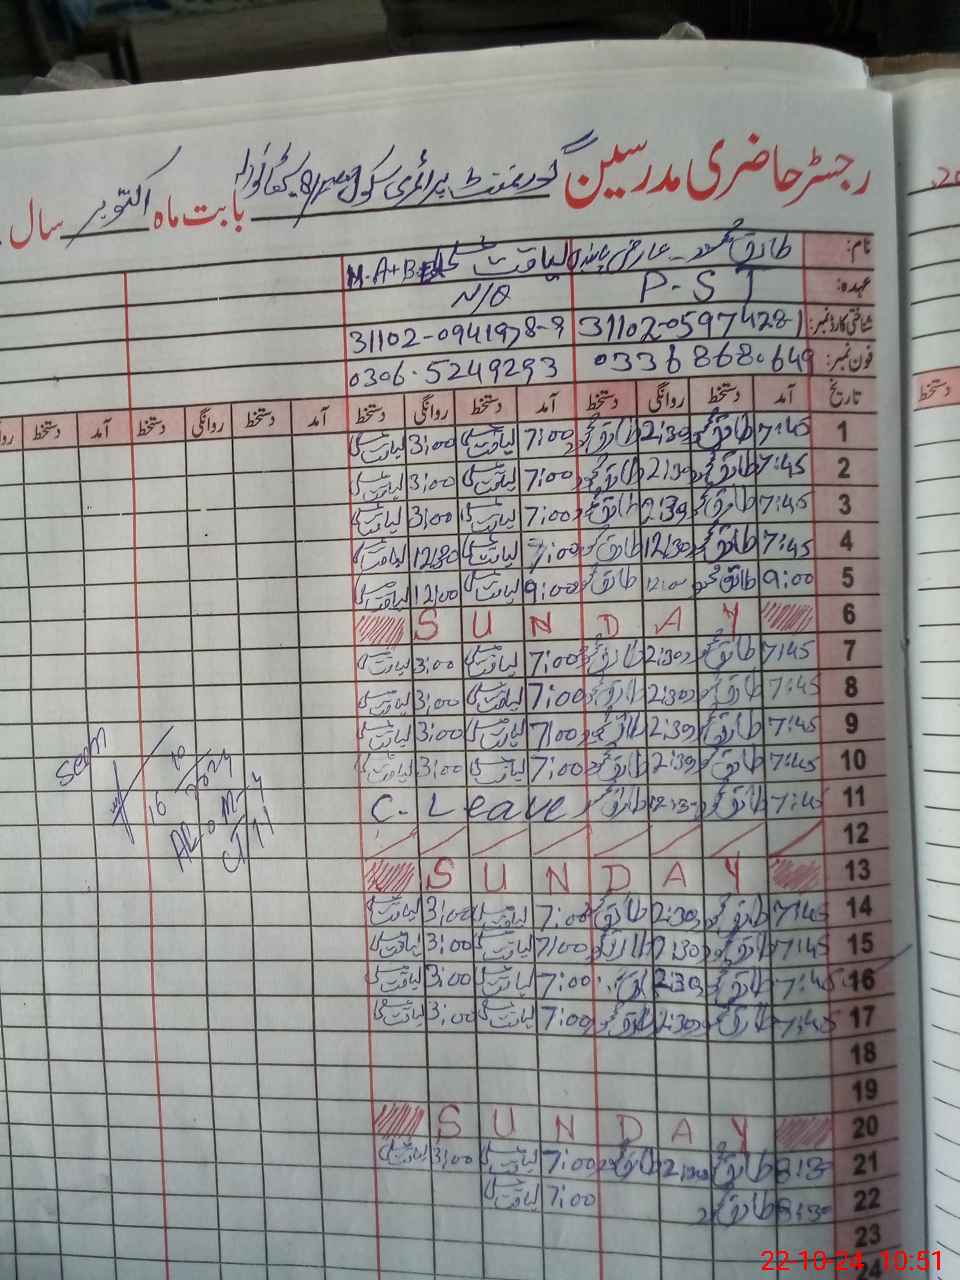 رجسٹر حاضری مدرسین گورنمنٹ پرائمری سکول بابت ماہ اکتوبر سال
نام: طارق محمود لیاقت علی M.A+B
عہدہ: P-ST N/Q
شناختی کارڈ نمبر: 31102-0597428-1 31102-0941978-9
فون نمبر: 03368680649 0306-5249293
تاریخ آمد دستخط روانگی دستخط آمد دستخط روانگی دستخط آمد دستخط روانگی دستخط آمد دستخط
1 7:45 طارق محمود 2:30 طارق محمود 7:00 لیاقت علی 3:00 لیاقت علی
2 7:45 طارق محمود 2:30 طارق محمود 7:00 لیاقت علی 3:00 لیاقت علی
3 7:45 طارق محمود 2:30 طارق محمود 7:00 لیاقت علی 3:00 لیاقت علی
4 7:45 طارق محمود 12:30 طارق محمود 7:00 لیاقت علی 12:30 لیاقت علی
5 9:00 طارق محمود 12:00 طارق محمود 9:00 لیاقت علی 12:00 لیاقت علی
6 SUNDAY
7 7:45 طارق محمود 2:30 طارق محمود 7:00 لیاقت علی 3:00 لیاقت علی
8 7:45 طارق محمود 2:30 طارق محمود 7:00 لیاقت علی 3:00 لیاقت علی
9 7:45 طارق محمود 2:30 طارق محمود 7:00 لیاقت علی 3:00 لیاقت علی
10 7:45 طارق محمود 2:30 طارق محمود 7:00 لیاقت علی 3:00 لیاقت علی
11 7:45 طارق محمود 12:30 طارق محمود C. Leave
12
13 SUNDAY
14 7:45 طارق محمود 2:30 طارق محمود 7:00 لیاقت علی 3:00 لیاقت علی
15 7:45 طارق محمود 2:30 طارق محمود 7:00 لیاقت علی 3:00 لیاقت علی
16 7:45 طارق محمود 2:30 طارق محمود 7:00 لیاقت علی 3:00 لیاقت علی
17 7:45 طارق محمود 2:30 طارق محمود 7:00 لیاقت علی 3:00 لیاقت علی
18
19
20 SUNDAY
21 8:30 طارق محمود 2:30 طارق محمود 7:00 لیاقت علی 3:00 لیاقت علی
22 8:30 طارق محمود 7:00 لیاقت علی
23
24
Seen
16
10
2024
دستخط
22-10-24 10:51